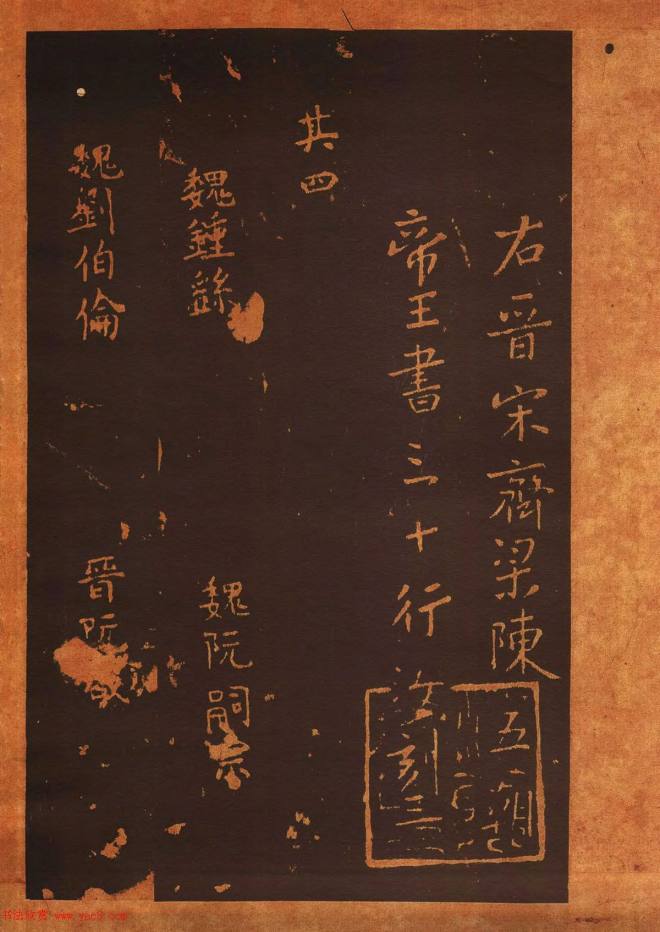 右晉宋齊梁陳
帝王書三十行
汝刻三
五
其四
魏鍾繇
魏阮嗣宗
魏劉伯倫
晉阮咸
书法欣赏 www.yac8.com